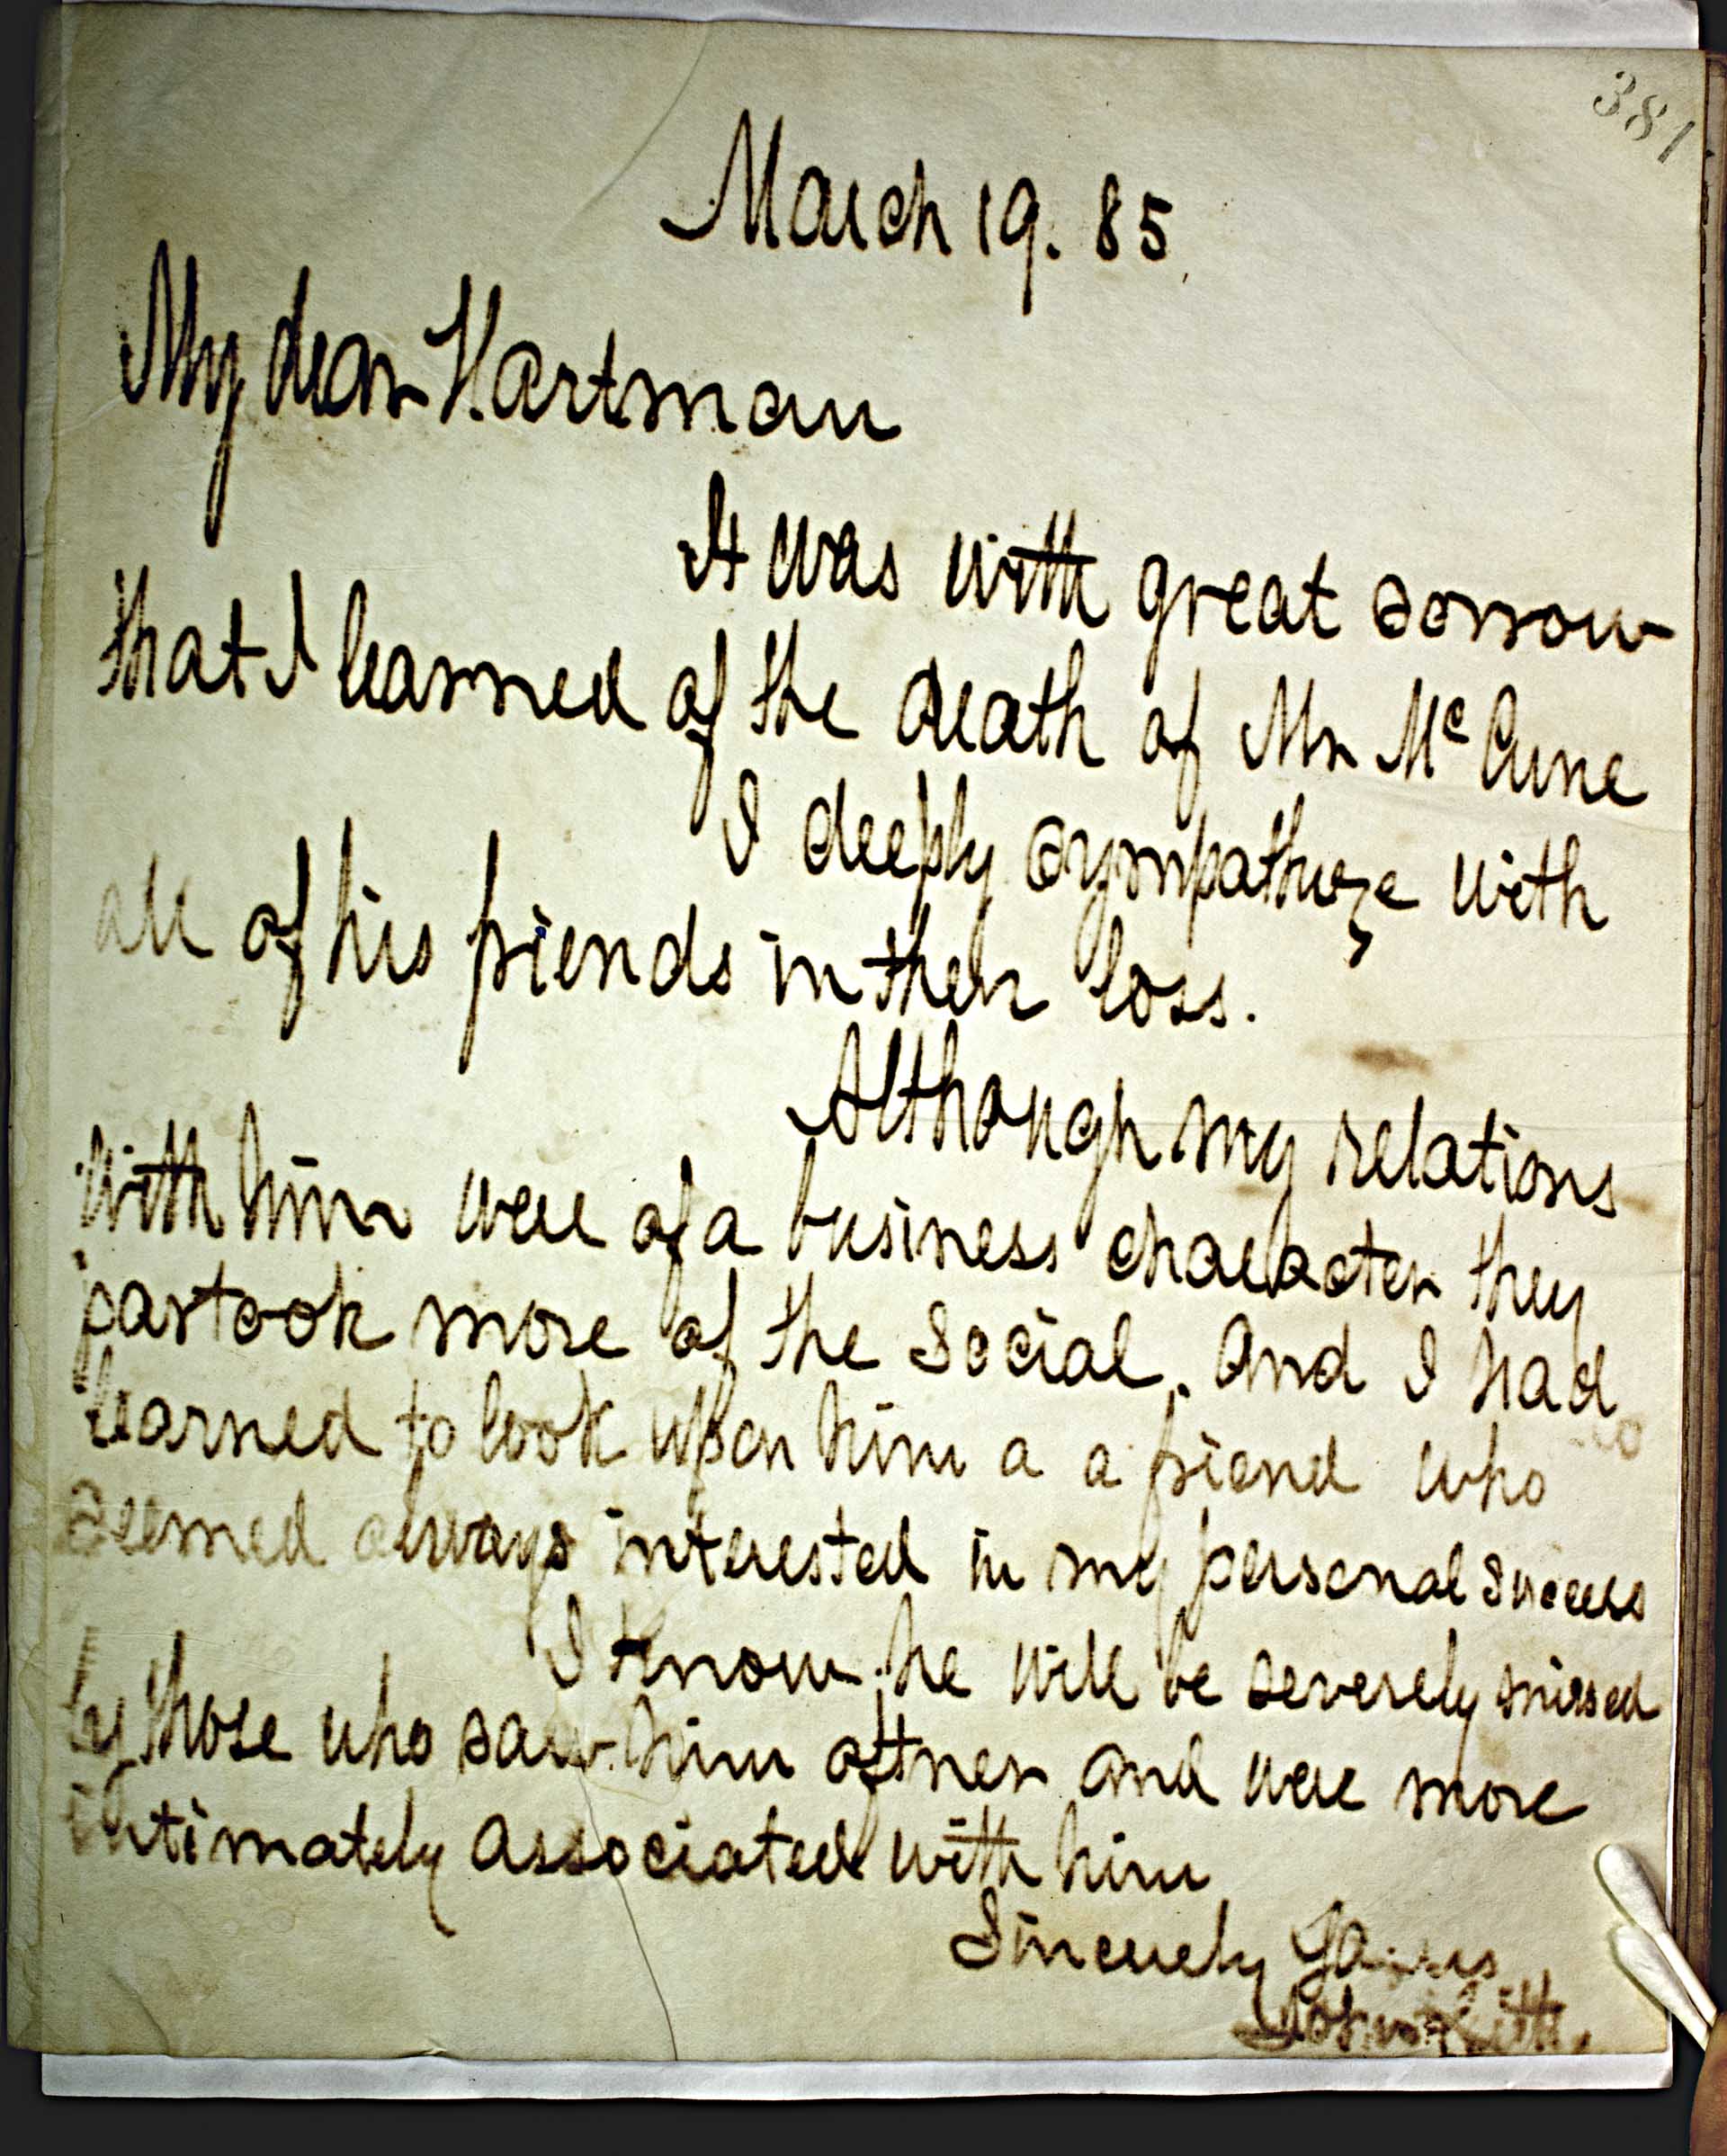 381
March 19. 85
My dear Hartman
It was with great sorrow
that I learned of the death of Mr McCune
I deeply sympathize with
all of his friends in their loss.
Although my relations
with him were of a business character they
partook more of the Social. And I had
learned to look upon him a a friend who
seemed always interested in my personal success
I know he will be severely missed
by those who saw him oftner and were more
intimately associated with him
Sincerely Yours